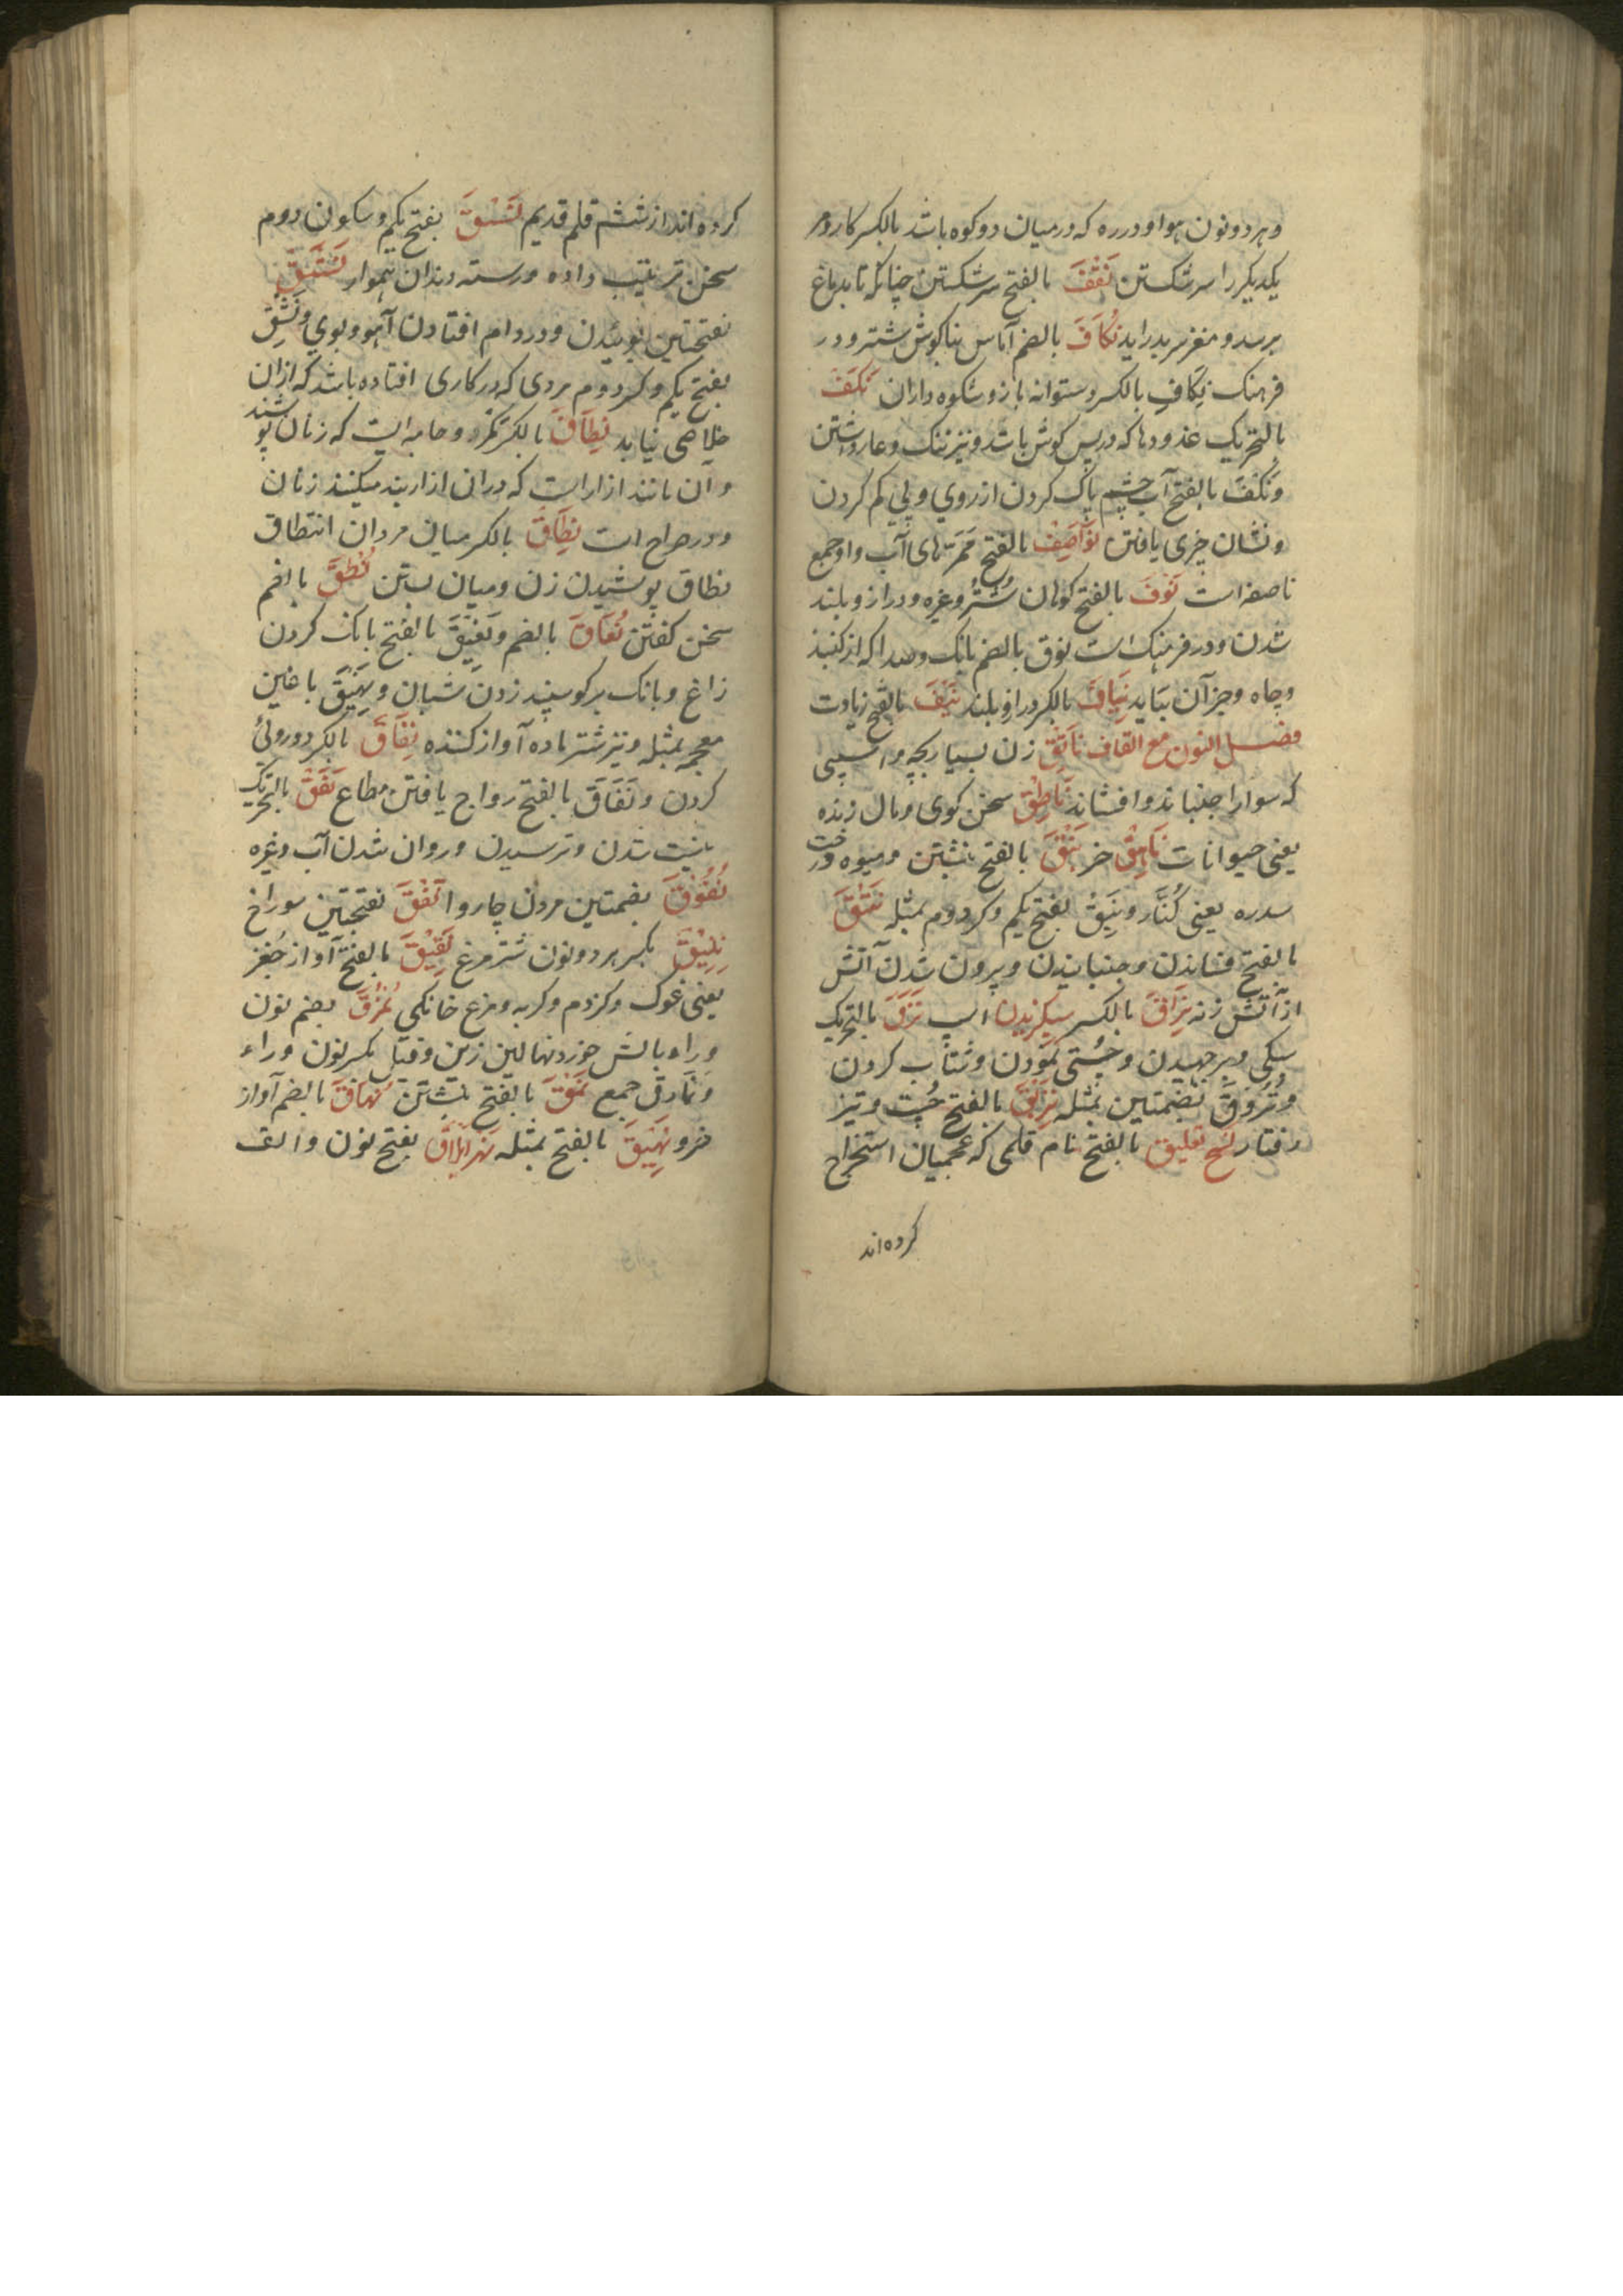 و هر دو نون هوا و دره که در میان دو کوه باشد بالکسر کارزار
یکدیکر را سر شکستن نَقْفَ بالفتح سر شکستن چنانکه تا بدماغ
برسد و مغز سر بدر اید نُکَافَ بالضم آماس بناکوش شتر و در
فرهنک نِکَافِ بالکسر دستوانه بازو شکوه داران نَکَفَ
بالتحریک غدودها که در پس کوش باشد و نیز ننک و عار داشتن
و نَکْفَ بالفتح آب چشم پاک کردن از روی و پی کم کردن
و نشان چیزی یافتن نَوَاصِفْ بالفتح ممرتهای آب و او جمع
ناصفه است نَوْفَ بالفتح کوهان شُتُر و غیره و دراز و بلند
شدن و در فرهنک است نوق بالضم بانک و صدا که از کنبد
و چاه و جز آن بیاید نِیَافَ بالکسر دراز و بلند نَیْفَ بالفتح زیادت
فصل النون مع القاف نَاتِقِ زن بسیار بچه و اسپی
که سوار را جنباند و افشاند نَاطِقْ سخن کوی و مال زنده
یعنی حیوانات نَاهِقْ خر نَبْقَ بالفتح نبشتن و میوه درخت
سدره یعنی کُنَار و نَبِقْ بفتح یکم و کسر دوم بمثله نَتْقَ
بالفتح فشاندن و جنبانیدن و بیرون شدن آتش
از آتش زنه نِزَاقَ بالکسر سیکزیدن اسپ نَزَقَ بالتحریک
سبکی و برجهیدن و چُستی نمودن و شتاب کردن
و نُزُوقَ بضمتین بمثله نَزِقَ بالفتح چُست و تیز
رفتار نسخ تعلیق بالفتح نام قلمی که عجمیان استخراج
کرده اند
کرده اند از ششم قلم قدیم نَسْقَ بفتح یکم و سکون دوم
سخن ترتیب داده و رسته دندان هموار نَشَقَ
بفتحتین بوئیدن و در دام افتادن آهو و بوی و نَشِقْ
بفتح یکم و کسر دوم مردی که در کاری افتاده باشد که از ان
خلاصی نیابد نِطَاقَ بالکسر کمر و جامه ایست که زنان پوشند
و آن مانند ازار است که در ان ازاربند میکنند زنان
و در صراح است نِطَاقَ بالکسر میان مردان انتطاق
نطاق پوشیدن زن و میان بستن نُطْقَ بالضم
سخن کفتن نُعَاقَ بالضم و نَعِیْقَ بالفتح بانک کردن
زاغ و بانک بر کوسپند زدن شبان و نَغِیْقَ با غین
معجمه بمثله و نیز شتر ماده آواز کننده نِفَاقَ بالکسر دوروئی
کردن و نَفَاقَ بالفتح رواج یافتن مطاع نَفَقْ بالتحریک
نیست شدن و ترسیدن و روان شدن آب و غیره
نُفُوْقَ بضمتین مردن چاروا نَفَقَ بفتحتین سوراخ
نِقْنِیْقَ بکسر هر دو نون شترمرغ نَقِیْقَ بالفتح آواز جُغز
یعنی غوک و کزدم و کربه و مرغ خانکی نُمْرُقَ بضم نون
و راء بالش خورد نهالین زین و قیل بکسر نون و راء
و نَمَارق جمع نَمْقَ بالفتح نبشتن نُهَاقَ بالضم آواز
خر و نَهِیْقَ بالفتح بمثله بفتح نون و الف